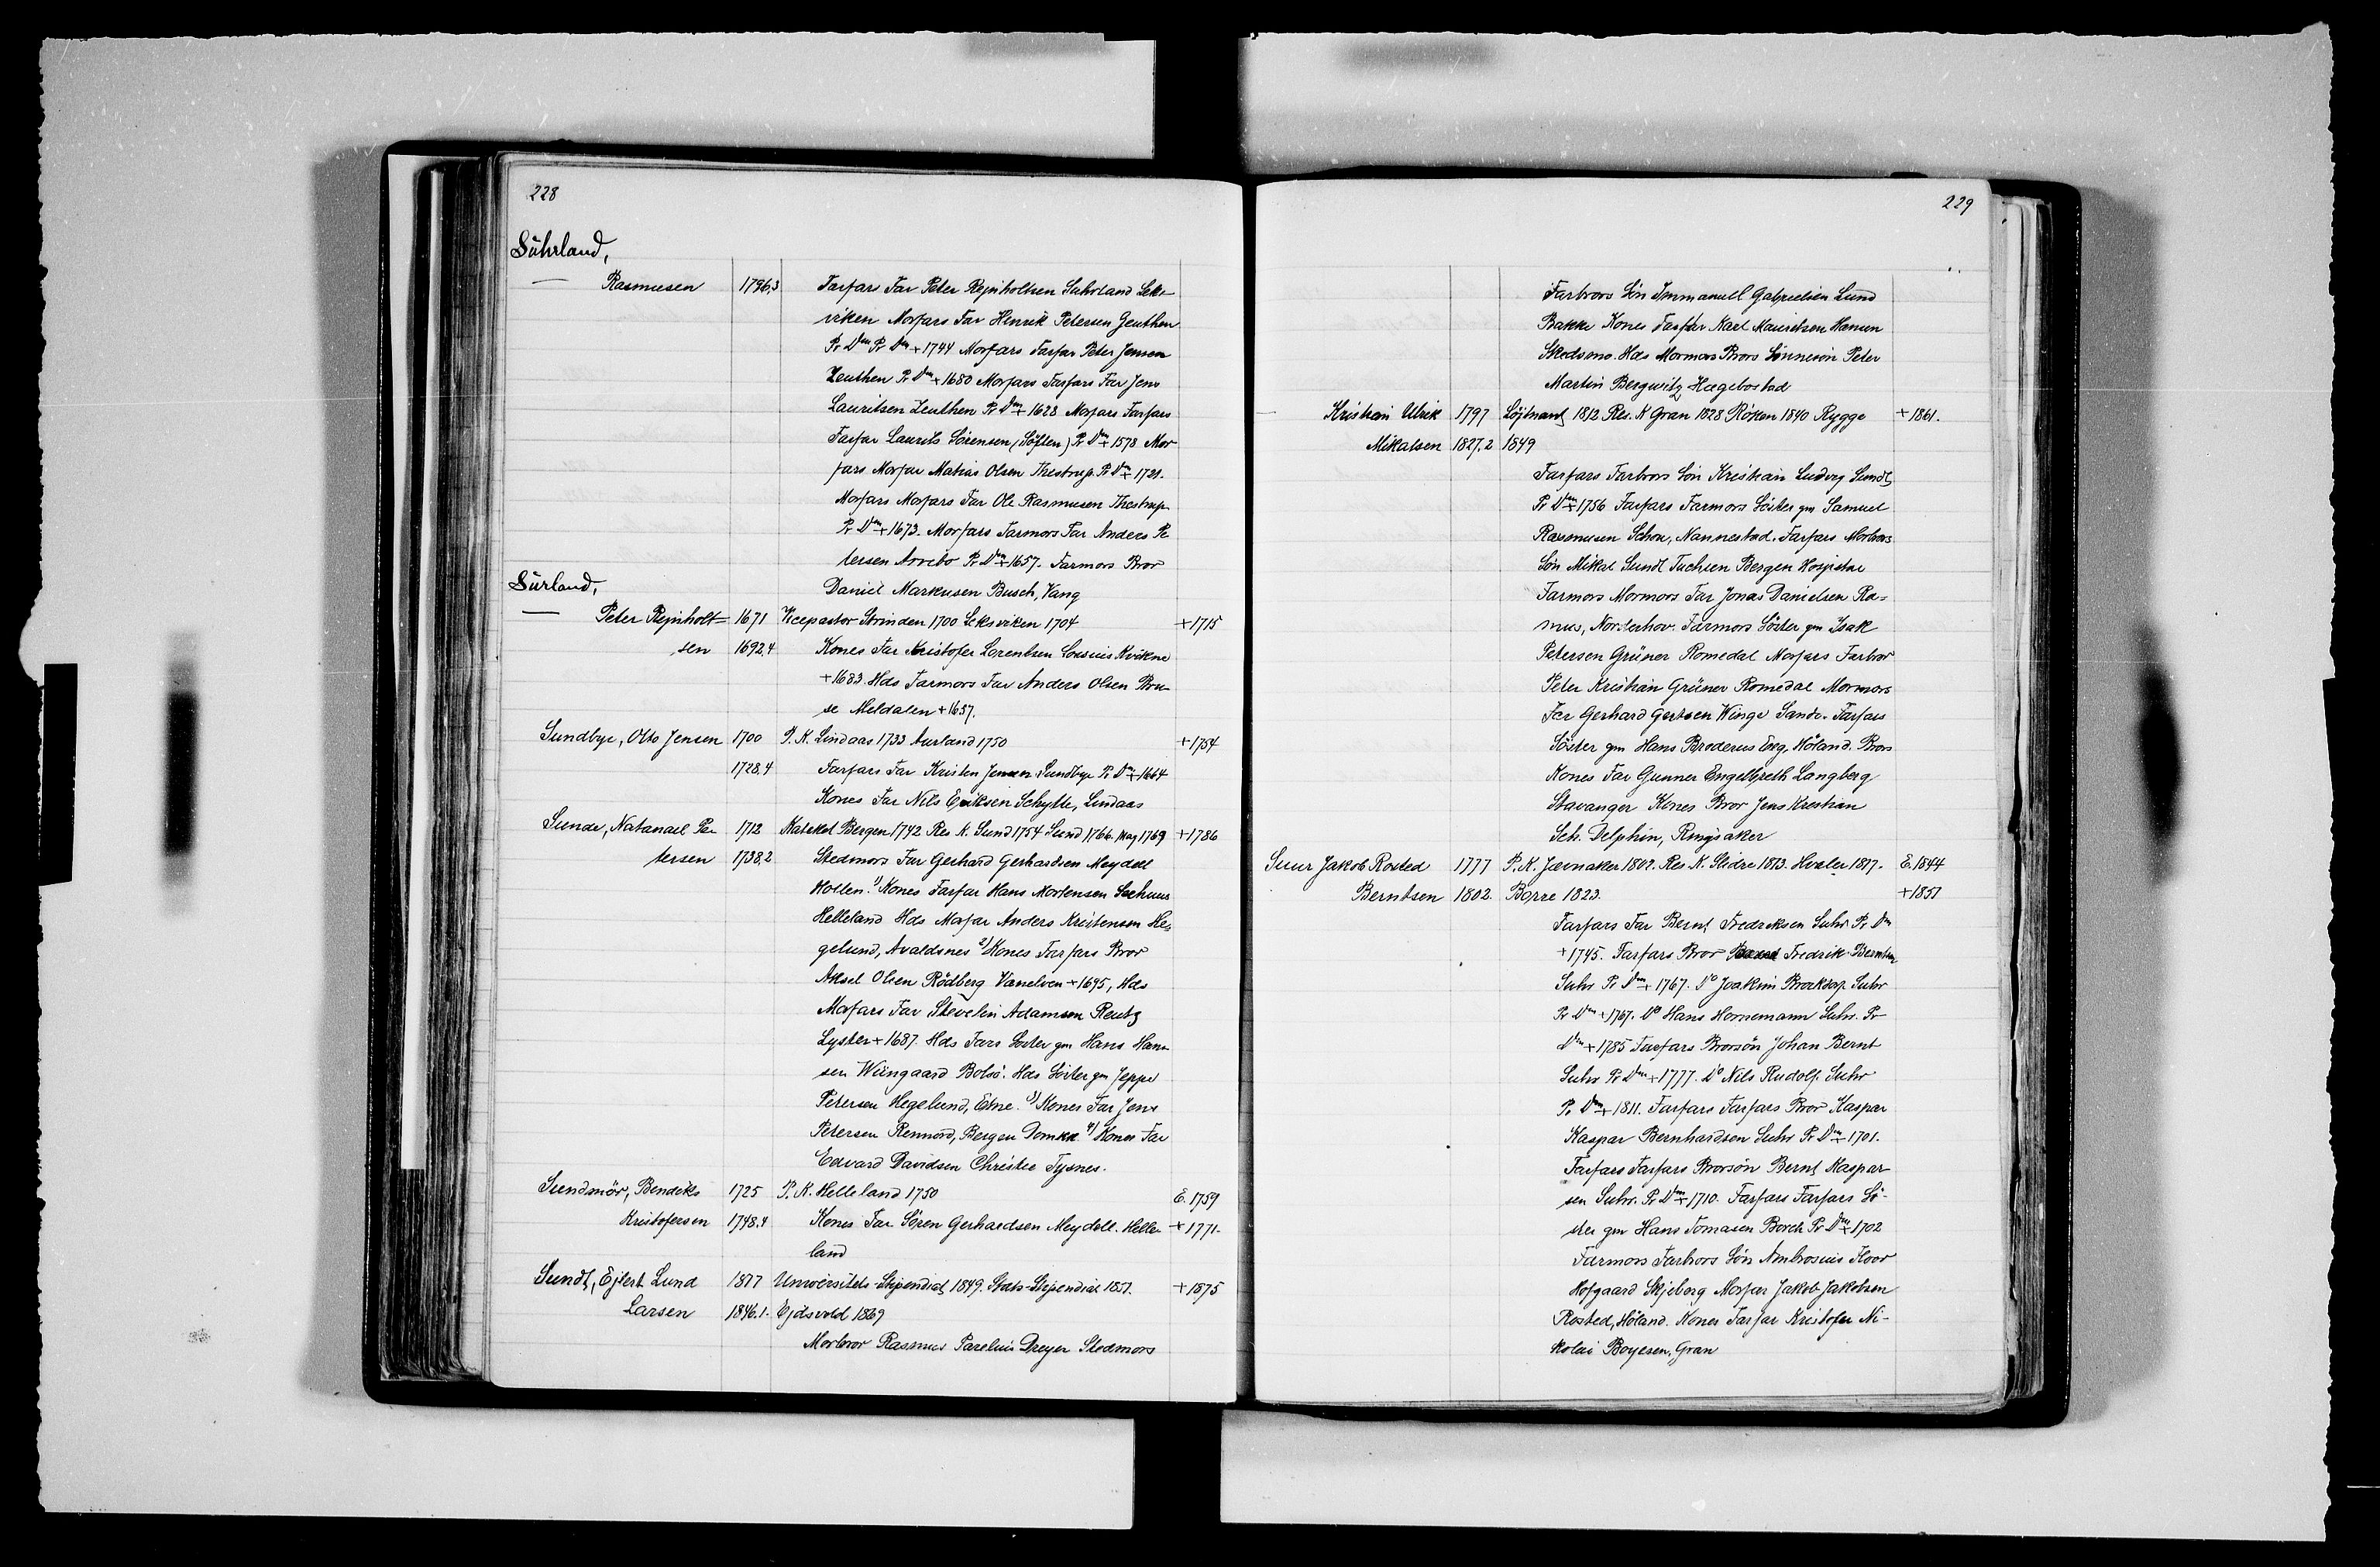 228
Suhrland,
— Rasmusen 1796.3 Farfars Far Peter Rejnholtsen Suhrland Leks-
viken Morfars Far Henrik Petersen Zeuthen
Pr Dm Pr Dm + 1744 Morfars Farfar Peter Jensen
Zeuthen Pr Dm + 1680 Morfars Farfars Far Jens
Lauritsen Zeuthen Pr Dm + 1628 Morfars Farfars
Farfar Laurits Sörensen (Söften) Pr Dm + 1578 Mor
fars Morfar Matias Olsen Thestrup. Pr Dm + 1721.
Morfars Morfars Far Ole Rasmusen Thestrup
Pr Dm + 1673. Morfars Farmors Far Anders Pe
tersen Arrebo Pr Dm + 1657. Farmors Bror
Daniel Markusen Busch, Vang
Surland,
— Peter Rejnholt= 1671 Vicepastor Strinden 1700 Leksviken 1704 + 1715
sen 1692.4 Kones Far Kristofer Lorentsen Coxsius Kvikne
+ 1683. Hds Farmors Far Anders Olsen Bru-
se Meldalen + 1637.
Sundbye, Otto Jensen 1700 P. K. Lindaas 1733 Aurland 1750 + 1754
1728.4 Farfars Far Kristen Jensen Sundbye Pr Dm + 1664
Kones Far Nils Eriksen Schytte, Lindaas
Sunde, Natanael Pe- 1712 Kateket Bergen 1742 Res K. Sund 1754 Sund 1766. Mag 1769 + 1786
tersen 1738.2 Stedmors Far Gerhard Gerhardsen Meydell
Holten. 1) Kones Farfar Hans Mortensen Seehuus
Helleland Hds Morfar Anders Kristensen He-
gelund, Avaldsnes 2) Kones Farfars Bror
Aksel Olsen Rödberg Vanelven + 1695, Hds
Morfars Far Stevelin Adamsen Reutz
Lyster + 1687. Hds Fars Söster gm Hans Han-
sen Wiingaard Bolsö. Hds Söster gm Jeppe
Petersen Hegelund, Etne. 3) Kones Far Jens
Petersen Rennord, Bergen Domkk 4) Kones Far
Edvard Davidsen Christie Tysnes.
Sundmör, Bendiks 1725 P. K. Helleland 1750 E. 1759
Kristofersen 1748.4 Kones Far Sören Gerhardsen Meydell. Helle- + 1771.
land
Sundt, Ejlert Lund 1817 Universitets-Stipendiat 1849. Stats-Stipendiat 1851. + 1875
Larsen 1846.1. Ejdsvold 1869
Morbror Rasmus Parelius Dreyer Stedmors
229
Farbrors Sön Immanuel Gabrielsen Lund
Bakke Kones Farfar Karl Mauritsen Hansen
Skedsmo. Hds Mormors Brors Sönnesön Peter
Martin Bergwitz Hægebostad
— Kristian Ulrik 1797 Löjtnant 1812 Res. K Gran 1828 Röken 1840 Rygge + 1861.
Mikalsen 1827.2 1849
Farfars Farbrors Sön Kristian Ludvig Sundt
Pr Dm + 1756 Farfars Farmors Söster gm Samuel
Rasmusen Schou, Nannestad. Farfars Morbrors
Sön Mikal Sundt Tuchsen Bergen Hospital
Farmors Mormors Far Jonas Danielsen Ra=
mus, Norderhov. Farmors Söster gm Isak
Petersen Grüner Romedal Morfars Farbror
Peter Kristian Grüner Romedal Mormors
Far Gerhard Gertsen Winge Sande. Farfars
Söster gm Hans Broderus Eeg, Höland. Brors
Kones Far Gunner Engelbreth Langberg
Stavanger Kones Bror Jens Kristian
Seb. Delphin, Ringsaker
Suur Jakob Rosted 1777 P. K. Jævnaker 1802. Res. K. Slidre 1813. Hvaler 1817. E. 1844
Berntsen 1802. Borre 1823. + 1851
Farfars Far Bernt Fredriksen Suhr. Pr Dm
+ 1745. Farfars Bror Fredrik Berntsen
Suhr Pr Dm + 1767. Do Joakim Suhr
Pr Dm + 1767. Do Hans Hornemann Suhr. Pr
Dm + 1785 Farfars Brorsön Johan Bernt
Suhr Pr Dm + 1777. Do Nils Rudolf Suhr
Pr Dm + 1811. Farfars Farfars Bror Kaspar
Kaspar Bernhardsen Suhr Pr Dm + 1701.
Farfars Farfars Brorsön Bernt Kaspar-
sen Suhr. Pr Dm + 1710. Farfars Farfars Sö-
ster gm Hans Tomasen Borch Pr Dm + 1702
Farmors Farbrors Sön Ambrosius Floor
Hofgaard Skjeberg Morfar Jakob Jakobsen
Rosted, Höland. Kones Farfar Kristofer Ni-
kolai Boyesen, Gran